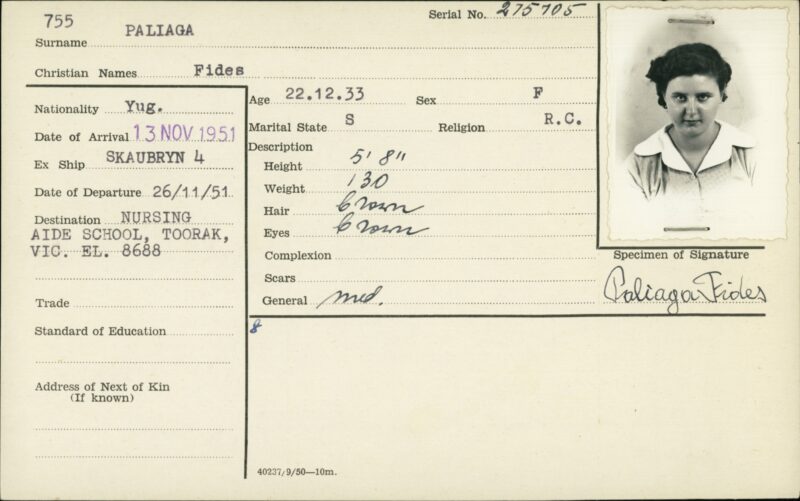 755 PALIAGA
Surname
Serial No. 275705
Christian Names Fides
Nationality Yug.
Date of Arrival 13 NOV 1951
Ex Ship SKAUBRYN 4
Date of Departure 26/11/51
Destination NURSING
AIDE SCHOOL, TOORAK,
VIC. EL. 8688
Trade
Standard of Education
Address of Next of Kin
(If known)
Age 22.12.33 Sex F
Marital State S Religion R.C.
Description
Height 5' 8"
Weight 130
Hair brown
Eyes brown
Complexion
Scars
General med.
8
40237/9/50—10m.
Specimen of Signature
Paliaga Fides